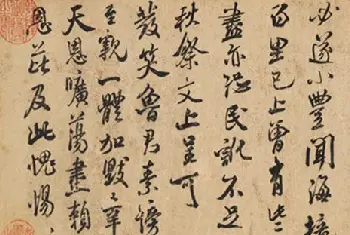 必遂小豐聞海
百里已上曾有些
盡亦恐民訛不足
秋祭文上呈可
發笑魯君素謗
至親一體加毀幸
天恩曠蕩盡賴
恩及此愧惕